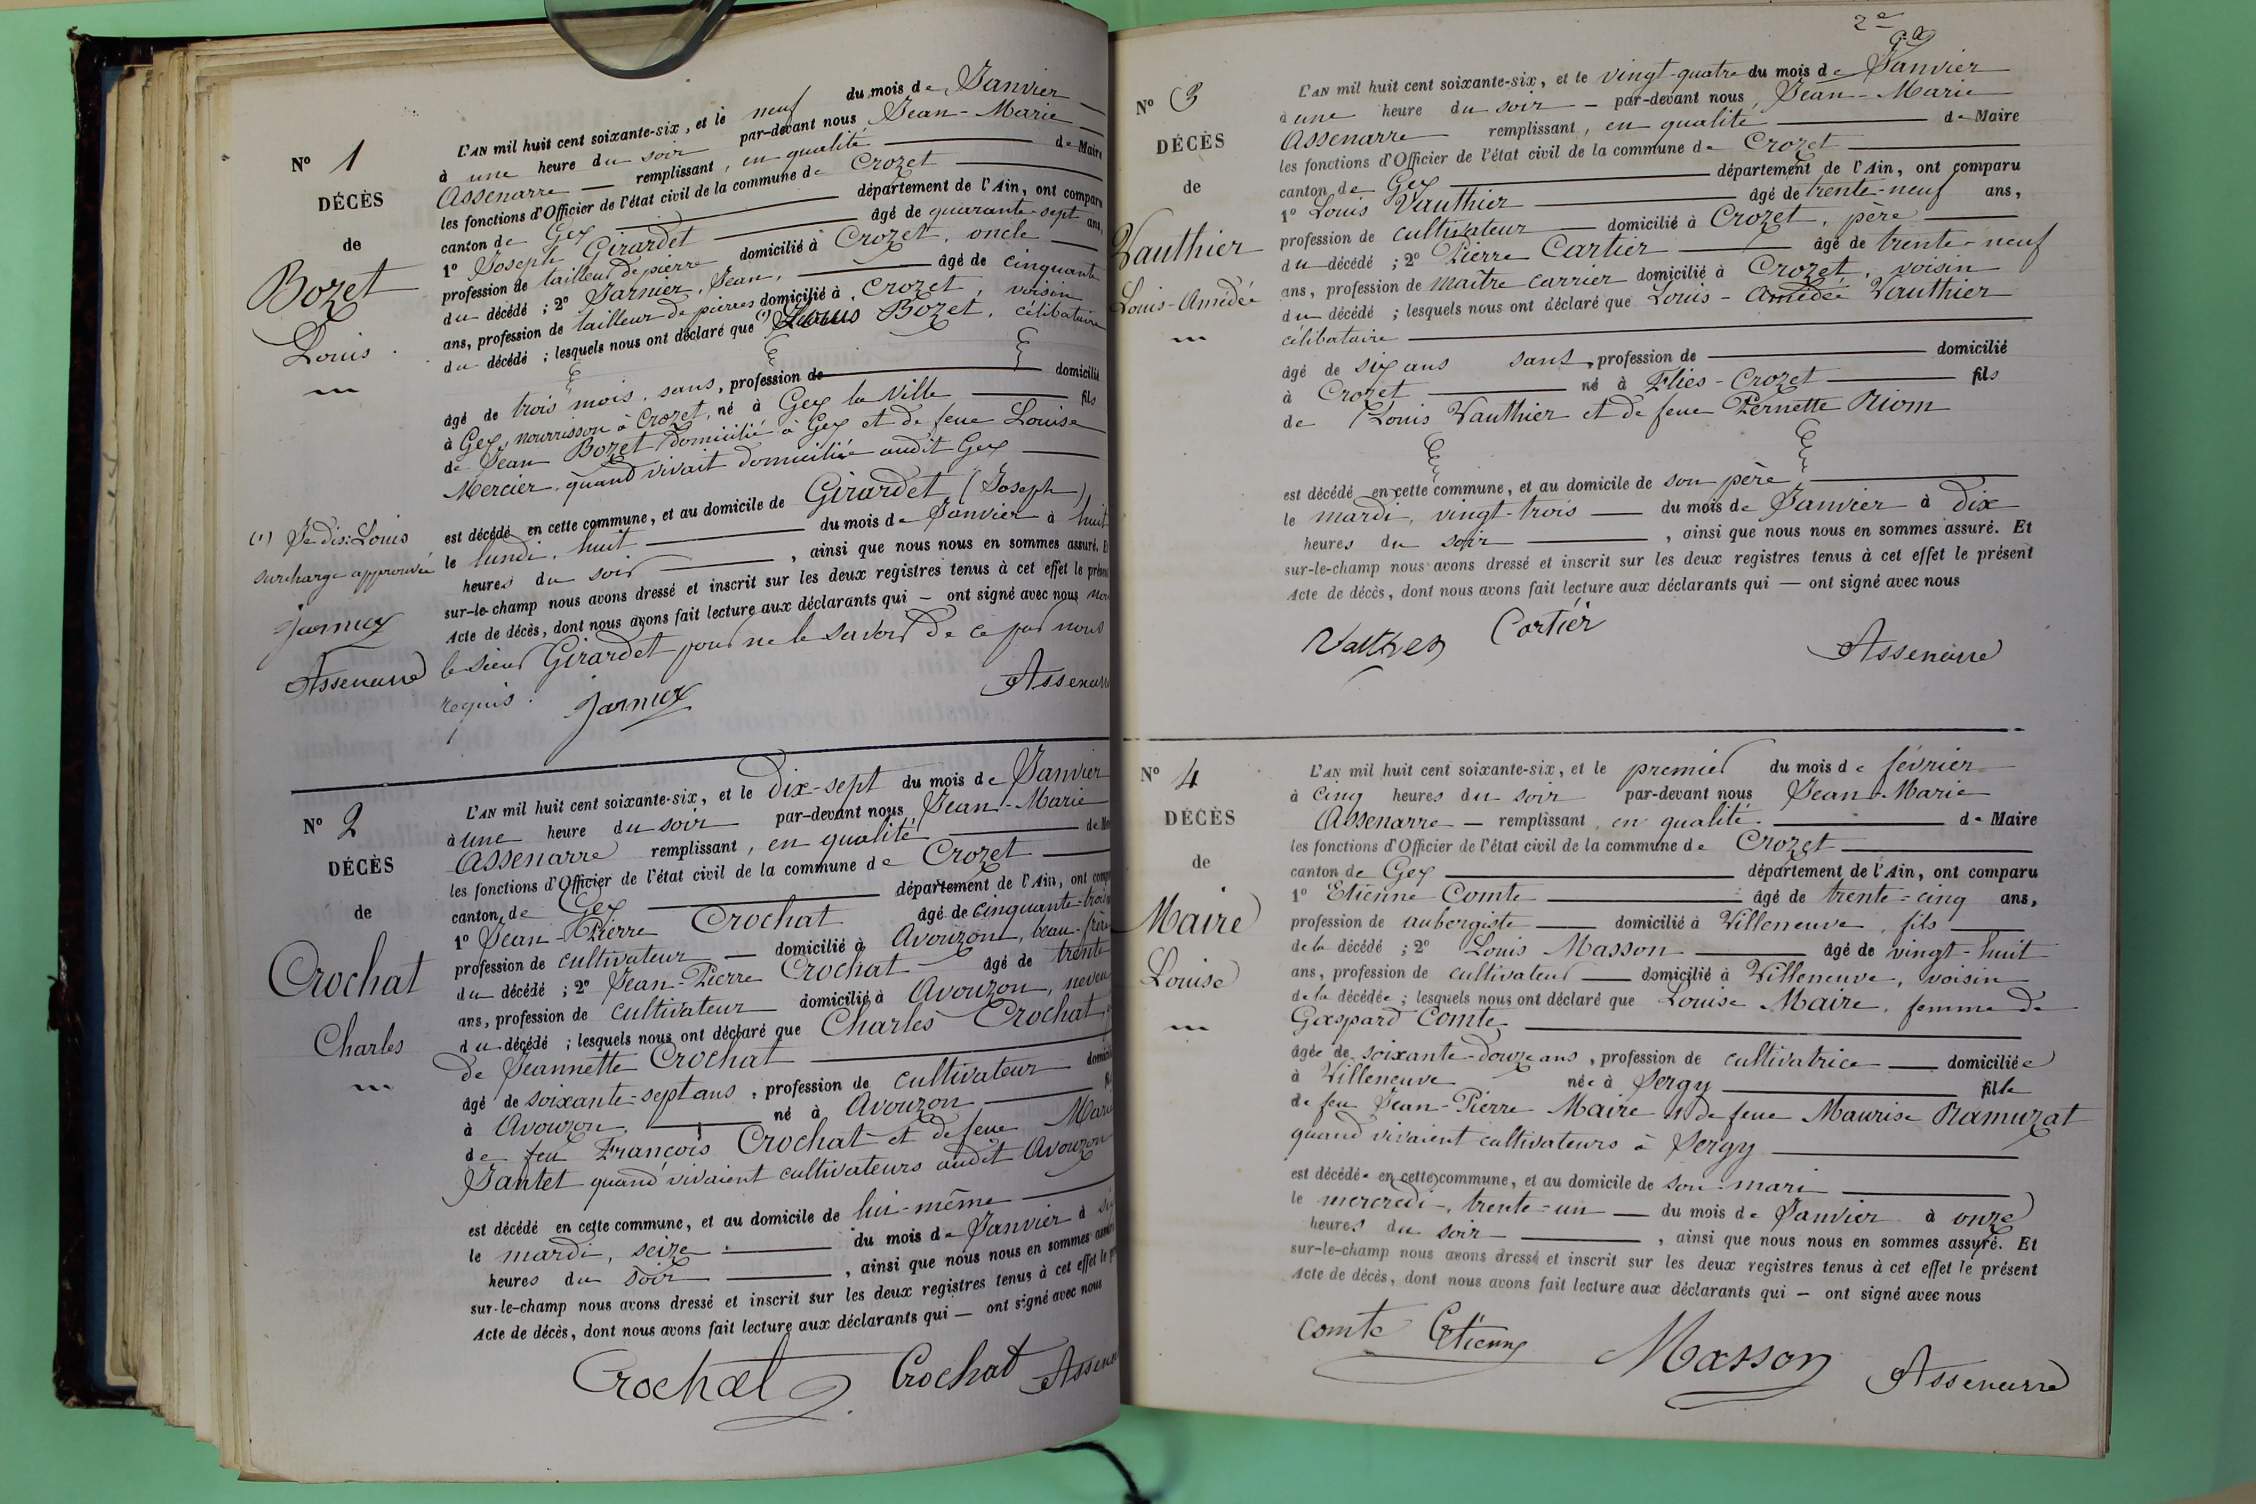 N° 1
DÉCÈS
de
Bozet
Louis.
(1) Je dis: Louis
surcharge approuvée
Jarnier
Assenarre
L'AN mil huit cent soixante-six, et le neuf du mois de Janvier
à une heure du soir par-devant nous Jean-Marie
Assenarre remplissant, en qualité de Maire
les fonctions d'Officier de l'état civil de la commune de Crozet
canton de Gex département de l'Ain, ont comparu
1° Joseph Girardet âgé de quarante-sept ans,
profession de tailleur de pierre domicilié à Crozet, oncle
du décédé ; 2° Jarnier, Jean, âgé de cinquante
ans, profession de tailleur de pierres domicilié à Crozet, voisin
du décédé ; lesquels nous ont déclaré que (1) Louis Bozet, célibataire
âgé de trois mois, sans, profession de domicilié
à Gex, nourrisson à Crozet, né à Gex la Ville fils
de Jean Bozet domicilié à Gex et de feue Louise
Mercier, quand vivait domiciliée audit Gex
est décédé en cette commune, et au domicile de Girardet (Joseph)
le lundi, huit du mois de Janvier à huit
heures du soir , ainsi que nous nous en sommes assuré. Et
sur-le-champ nous avons dressé et inscrit sur les deux registres tenus à cet effet le présent
Acte de décès, dont nous avons fait lecture aux déclarants qui — ont signé avec nous non
le sieur Girardet pour ne le savoir de ce par nous
requis. Jarnier Assenarre
N° 2
DÉCÈS
de
Crochat
Charles
L'AN mil huit cent soixante-six, et le Dix-sept du mois de Janvier
à une heure du soir par-devant nous Jean-Marie
Assenarre remplissant, en qualité de Maire
les fonctions d'Officier de l'état civil de la commune de Crozet
canton de Gex département de l'Ain, ont comparu
1° Jean-Pierre Crochat âgé de cinquante-trois
profession de cultivateur domicilié à Avouzon, beau-frère
du décédé ; 2° Jean-Pierre Crochat âgé de trente
ans, profession de cultivateur domicilié à Avouzon, neveu
du décédé ; lesquels nous ont déclaré que Charles Crochat
de Jeannette Crochat
âgé de soixante-sept ans, profession de cultivateur domicilié
à Avouzon, né à Avouzon
de feu François Crochat et de feue Marie
Jantet quand vivaient cultivateurs audit Avouzon
est décédé en cette commune, et au domicile de lui-même
le mardi, seize du mois de Janvier à
heures du soir , ainsi que nous nous en sommes assuré
sur-le-champ nous avons dressé et inscrit sur les deux registres tenus à cet effet le
Acte de décès, dont nous avons fait lecture aux déclarants qui — ont signé avec nous
Crochat Crochat Assenarre
2e
N° 3
DÉCÈS
de
Vauthier
Louis-Amédée
L'AN mil huit cent soixante-six, et le vingt-quatre du mois de Janvier
à une heure du soir — par-devant nous, Jean-Marie
Assenarre remplissant, en qualité de Maire
les fonctions d'Officier de l'état civil de la commune de Crozet
canton de Gex département de l'Ain, ont comparu
1° Louis Vauthier âgé de trente-neuf ans,
profession de cultivateur domicilié à Crozet, père
du décédé ; 2° Pierre Cartier âgé de trente-neuf
ans, profession de maître carrier domicilié à Crozet, voisin
du décédé ; lesquels nous ont déclaré que Louis-Amédée Vauthier
célibataire
âgé de six ans sans, profession de domicilié
à Crozet né à Flies-Crozet fils
de Louis Vauthier et de feue Pernette Riom
est décédé en cette commune, et au domicile de son père
le mardi, vingt-trois du mois de Janvier à dix
heures du soir , ainsi que nous nous en sommes assuré. Et
sur-le-champ nous avons dressé et inscrit sur les deux registres tenus à cet effet le présent
Acte de décès, dont nous avons fait lecture aux déclarants qui — ont signé avec nous
Cartier Assenarre
N° 4
DÉCÈS
de
Maire
Louise
L'AN mil huit cent soixante-six, et le premier du mois de février
à cinq heures du soir par-devant nous Jean-Marie
Assenarre — remplissant, en qualité de Maire
les fonctions d'Officier de l'état civil de la commune de Crozet
canton de Gex département de l'Ain, ont comparu
1° Etienne Comte âgé de trente-cinq ans,
profession de aubergiste domicilié à Villeneuve, fils
de la décédé ; 2° Louis Masson âgé de vingt-huit
ans, profession de cultivateur domicilié à Villeneuve, voisin
de la décédée ; lesquels nous ont déclaré que Louise Maire, femme de
Gaspard Comte
âgée de soixante-douze ans, profession de cultivatrice domiciliée
à Villeneuve née à Sergy fille
de feu Jean-Pierre Maire et de feue Maurise Ramuzat
quand vivaient cultivateurs à Sergy
est décédée en cette commune, et au domicile de son mari
le mercredi, trente-un du mois de Janvier à onze
heures du soir , ainsi que nous nous en sommes assuré. Et
sur-le-champ nous avons dressé et inscrit sur les deux registres tenus à cet effet le présent
Acte de décès, dont nous avons fait lecture aux déclarants qui — ont signé avec nous
Comte Etienne Masson Assenarre